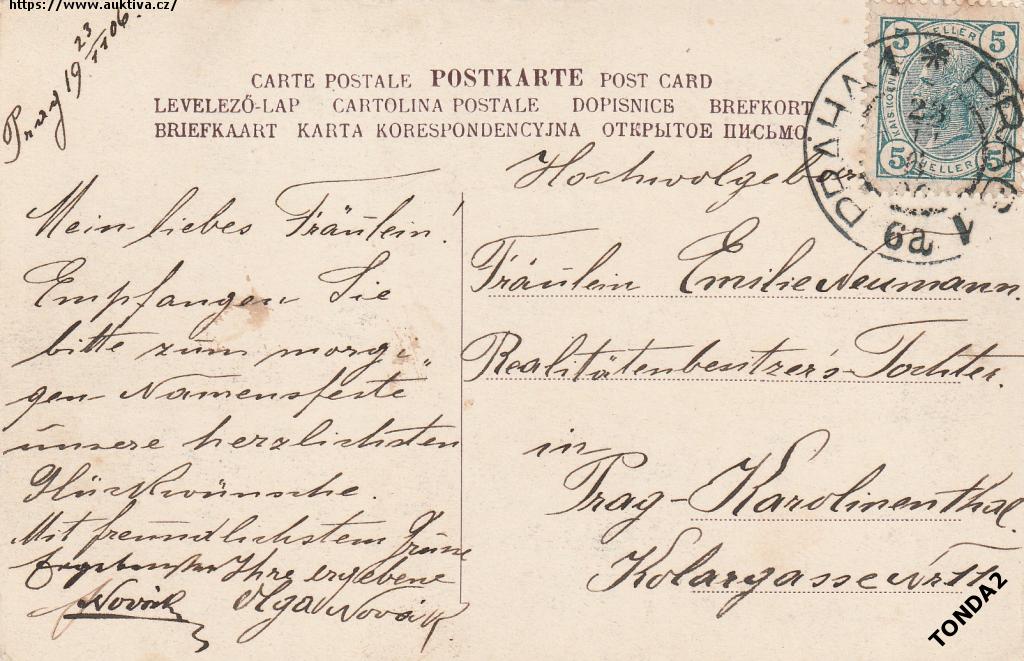 https://www.auktiva.cz/
Prag 19 23/11 06.
CARTE POSTALE POSTKARTE POST CARD
LEVELEZŐ-LAP CARTOLINA POSTALE DOPISNICE BREFKORT
BRIEFKAART KARTA KORESPONDENCYJNA ОТКРЫТОЕ ПИСЬМО
5 HELLER 5
5 HELLER 5
PRAHA 1 * PRAG 1
23
06
6a
Mein liebes Fräulein!
Empfangen Sie
bitte zum morgi„
gen Namensfeste
unsere herzlichsten
Glückwünsche.
Mit freundlichstem Grüne
Ihre ergebene
Novák Olga Novák.
Hochwolgebor
Fräulein Emilie Neumann.
Realitätenbesitzer's-Tochter.
in
Prag-Karolinenthal.
Kolargasse Nr 11.
TONDA2